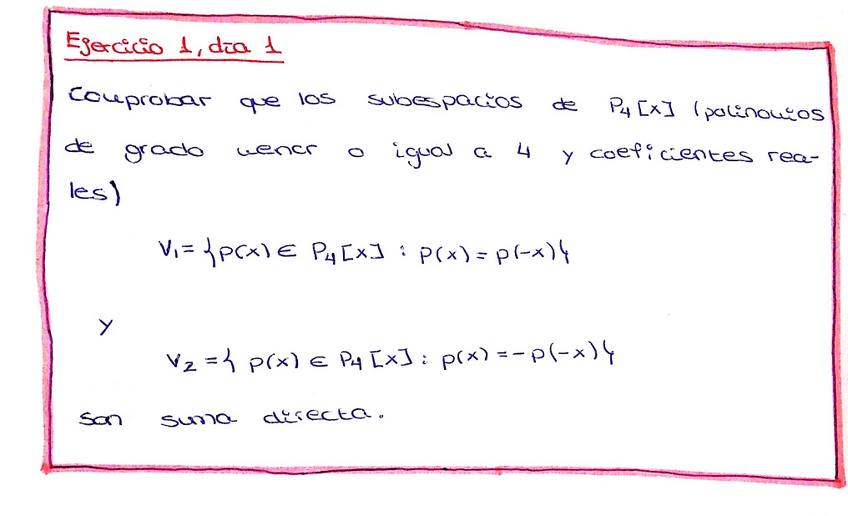 Ejercicio 1, día 1
Comprobar que los subespacios de P₄[x] (polinomios
de grado menor o igual a 4 y coeficientes rea-
les)
V₁ = {p(x) ∈ P₄[x] : p(x) = p(-x)}
y
V₂ = { p(x) ∈ P₄[x] : p(x) = -p(-x)}
son suma directa.